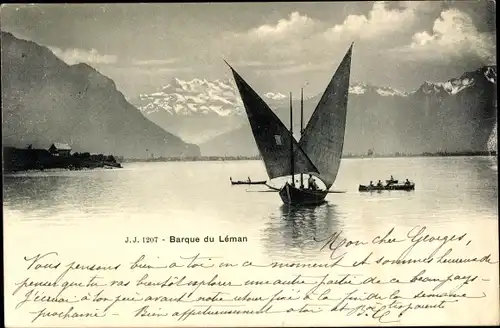 J.J. 1207 - Barque du Léman
Mon cher Georges,
Nous pensons bien à toi en ce moment et sommes heureux de
penser que tu vas bientôt explorer une autre partie de ce beau pays -
J'écrirai à ton père avant notre retour fixé à la fin de la semaine
prochaine - Bien affectueusement à toi